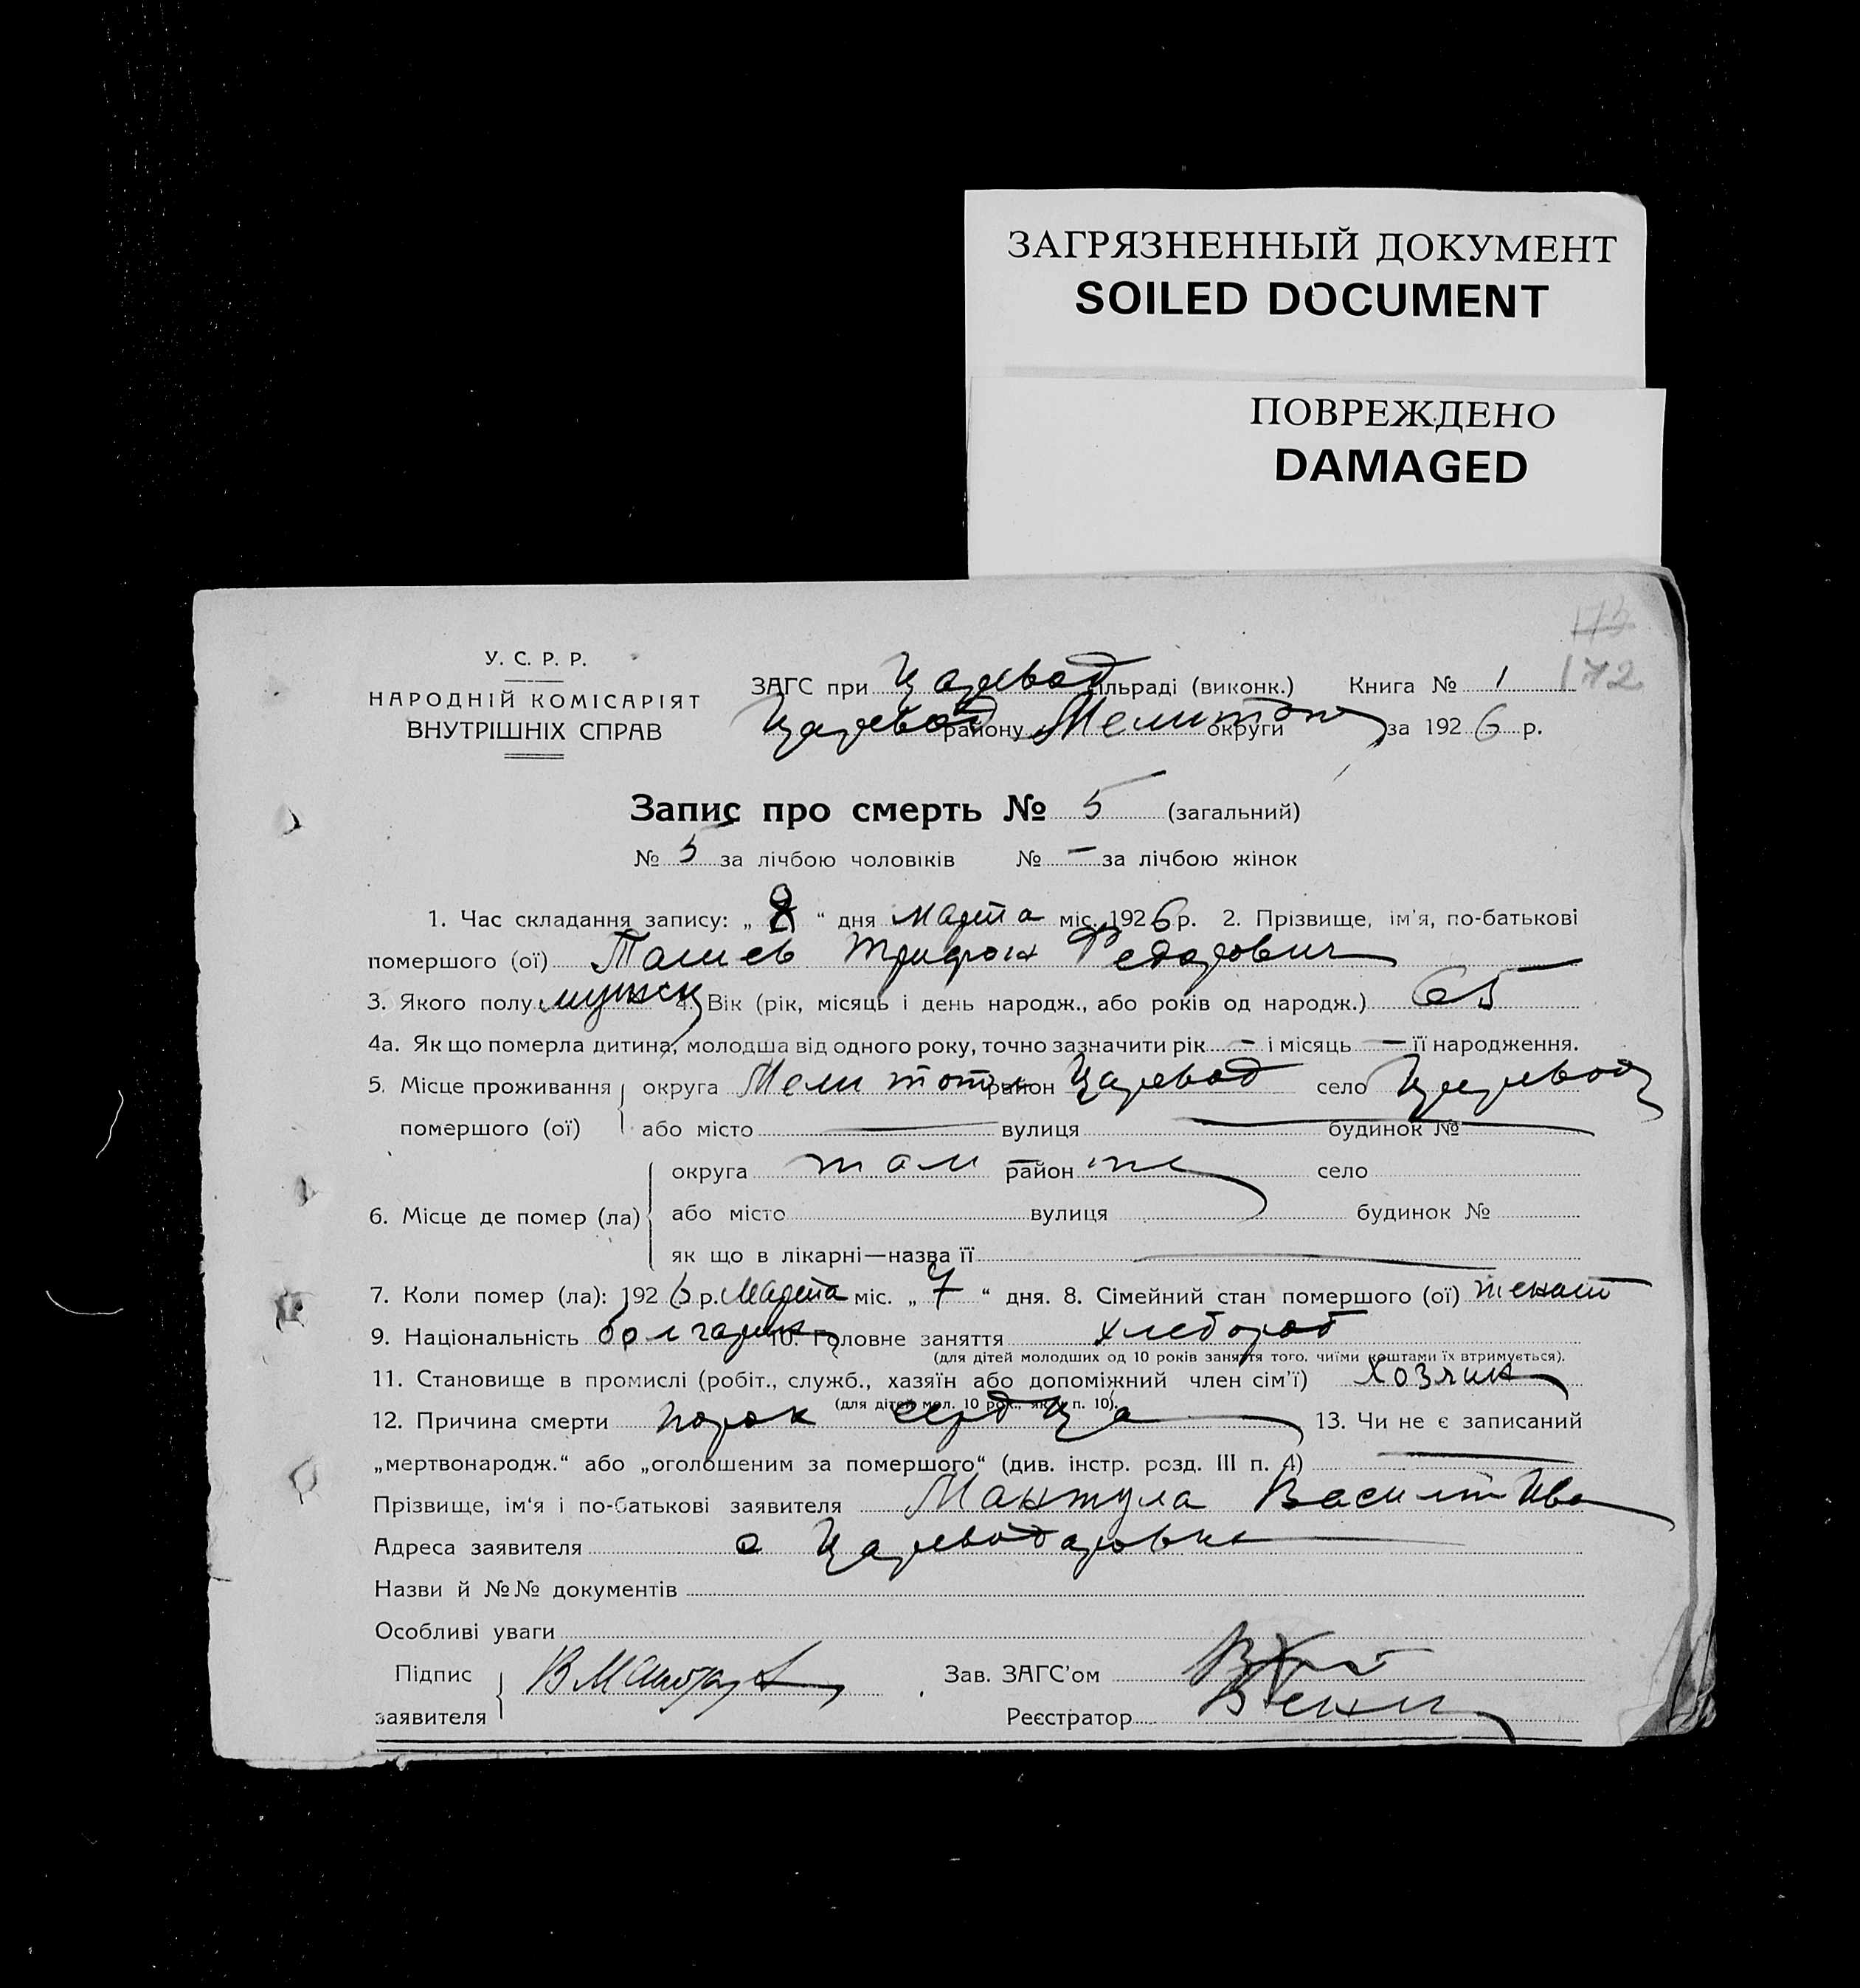 ЗАГРЯЗНЕННЫЙ ДОКУМЕНТ
SOILED DOCUMENT
ПОВРЕЖДЕНО
DAMAGED
173
172
У. С. Р. Р.
НАРОДНІЙ КОМІСАРІЯТ
ВНУТРІШНІХ СПРАВ
ЗАГС при Царевод сільраді (виконк.) Книга № 1
Царевод району Мелитоп округи за 1926 р.
Запис про смерть № 5 (загальний)
№ 5 за лічбою чоловіків № — за лічбою жінок
1. Час складання запису: „ 8 “ дня марта міс. 1926 р. 2. Прізвище, ім'я, по-батькові
помершого (ої) Трифон Федорович
3. Якого полу мужск 4. Вік (рік, місяць і день народж., або років од народж.) 65
4а. Як що померла дитина, молодша від одного року, точно зазначити рік — і місяць — її народження.
5. Місце проживання помершого (ої) округа Мелитоп район Царевод село Царевод
або місто — вулиця — будинок №
6. Місце де помер (ла) округа там район же село
або місто вулиця будинок №
як що в лікарні—назва її —
7. Коли помер (ла): 1926 р. Марта міс. „ 7 “ дня. 8. Сімейний стан помершого (ої) женат
9. Національність болгарин 10. Головне заняття хлебороб
(для дітей молодших од 10 років заняття того, чиїми коштами їх втримується).
11. Становище в промислі (робіт., служб., хазяїн або допоміжний член сім'ї) хозяин
(для дітей мол. 10 рок., як у п. 10).
12. Причина смерти порок сердца 13. Чи не є записаний
„мертвонародж.“ або „оголошеним за помершого“ (див. інстр. розд. III п. 4) —
Прізвище, ім'я і по-батькові заявителя Мантула Ива
Адреса заявителя с Цареводаровка
Назви й №№ документів
Особливі уваги
Підпис заявителя
Зав. ЗАГС'ом
Реєстратор